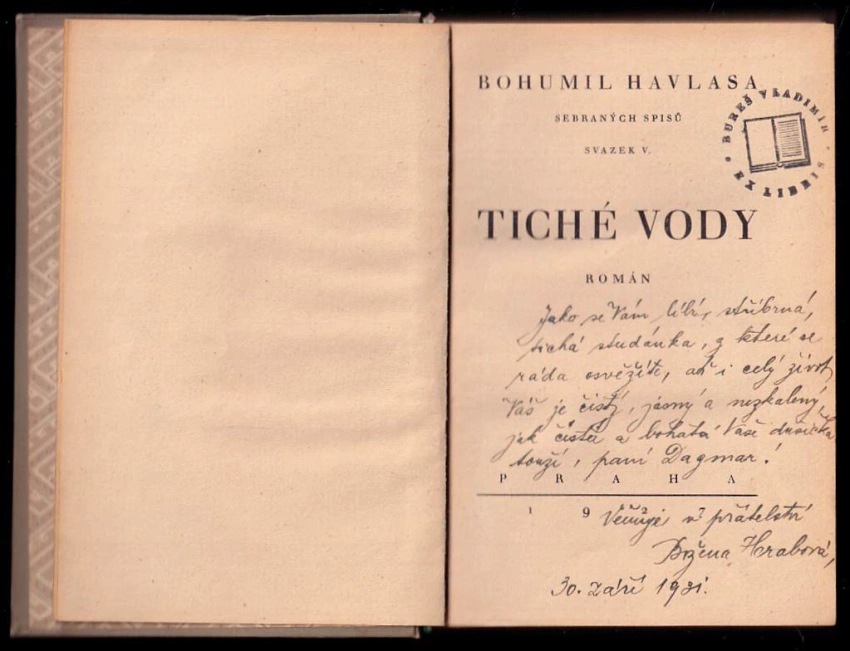 BOHUMIL HAVLASA
SEBRANÝCH SPISŮ
SVAZEK V.
• BUREŠ VLADIMÍR •
EX LIBRIS
TICHÉ VODY
ROMÁN
Jako se Vám líbí, stříbrná,
tichá studánka, z které se
ráda osvěžíte, ať i celý život
Váš je čistý, jasný a nezkalený,
jak čistá a bohatá Vaše dušička
touží, paní Dagmar!
PRAHA
1927
Věnuje v přátelství
Božena Hrabová,
30. září 1931.